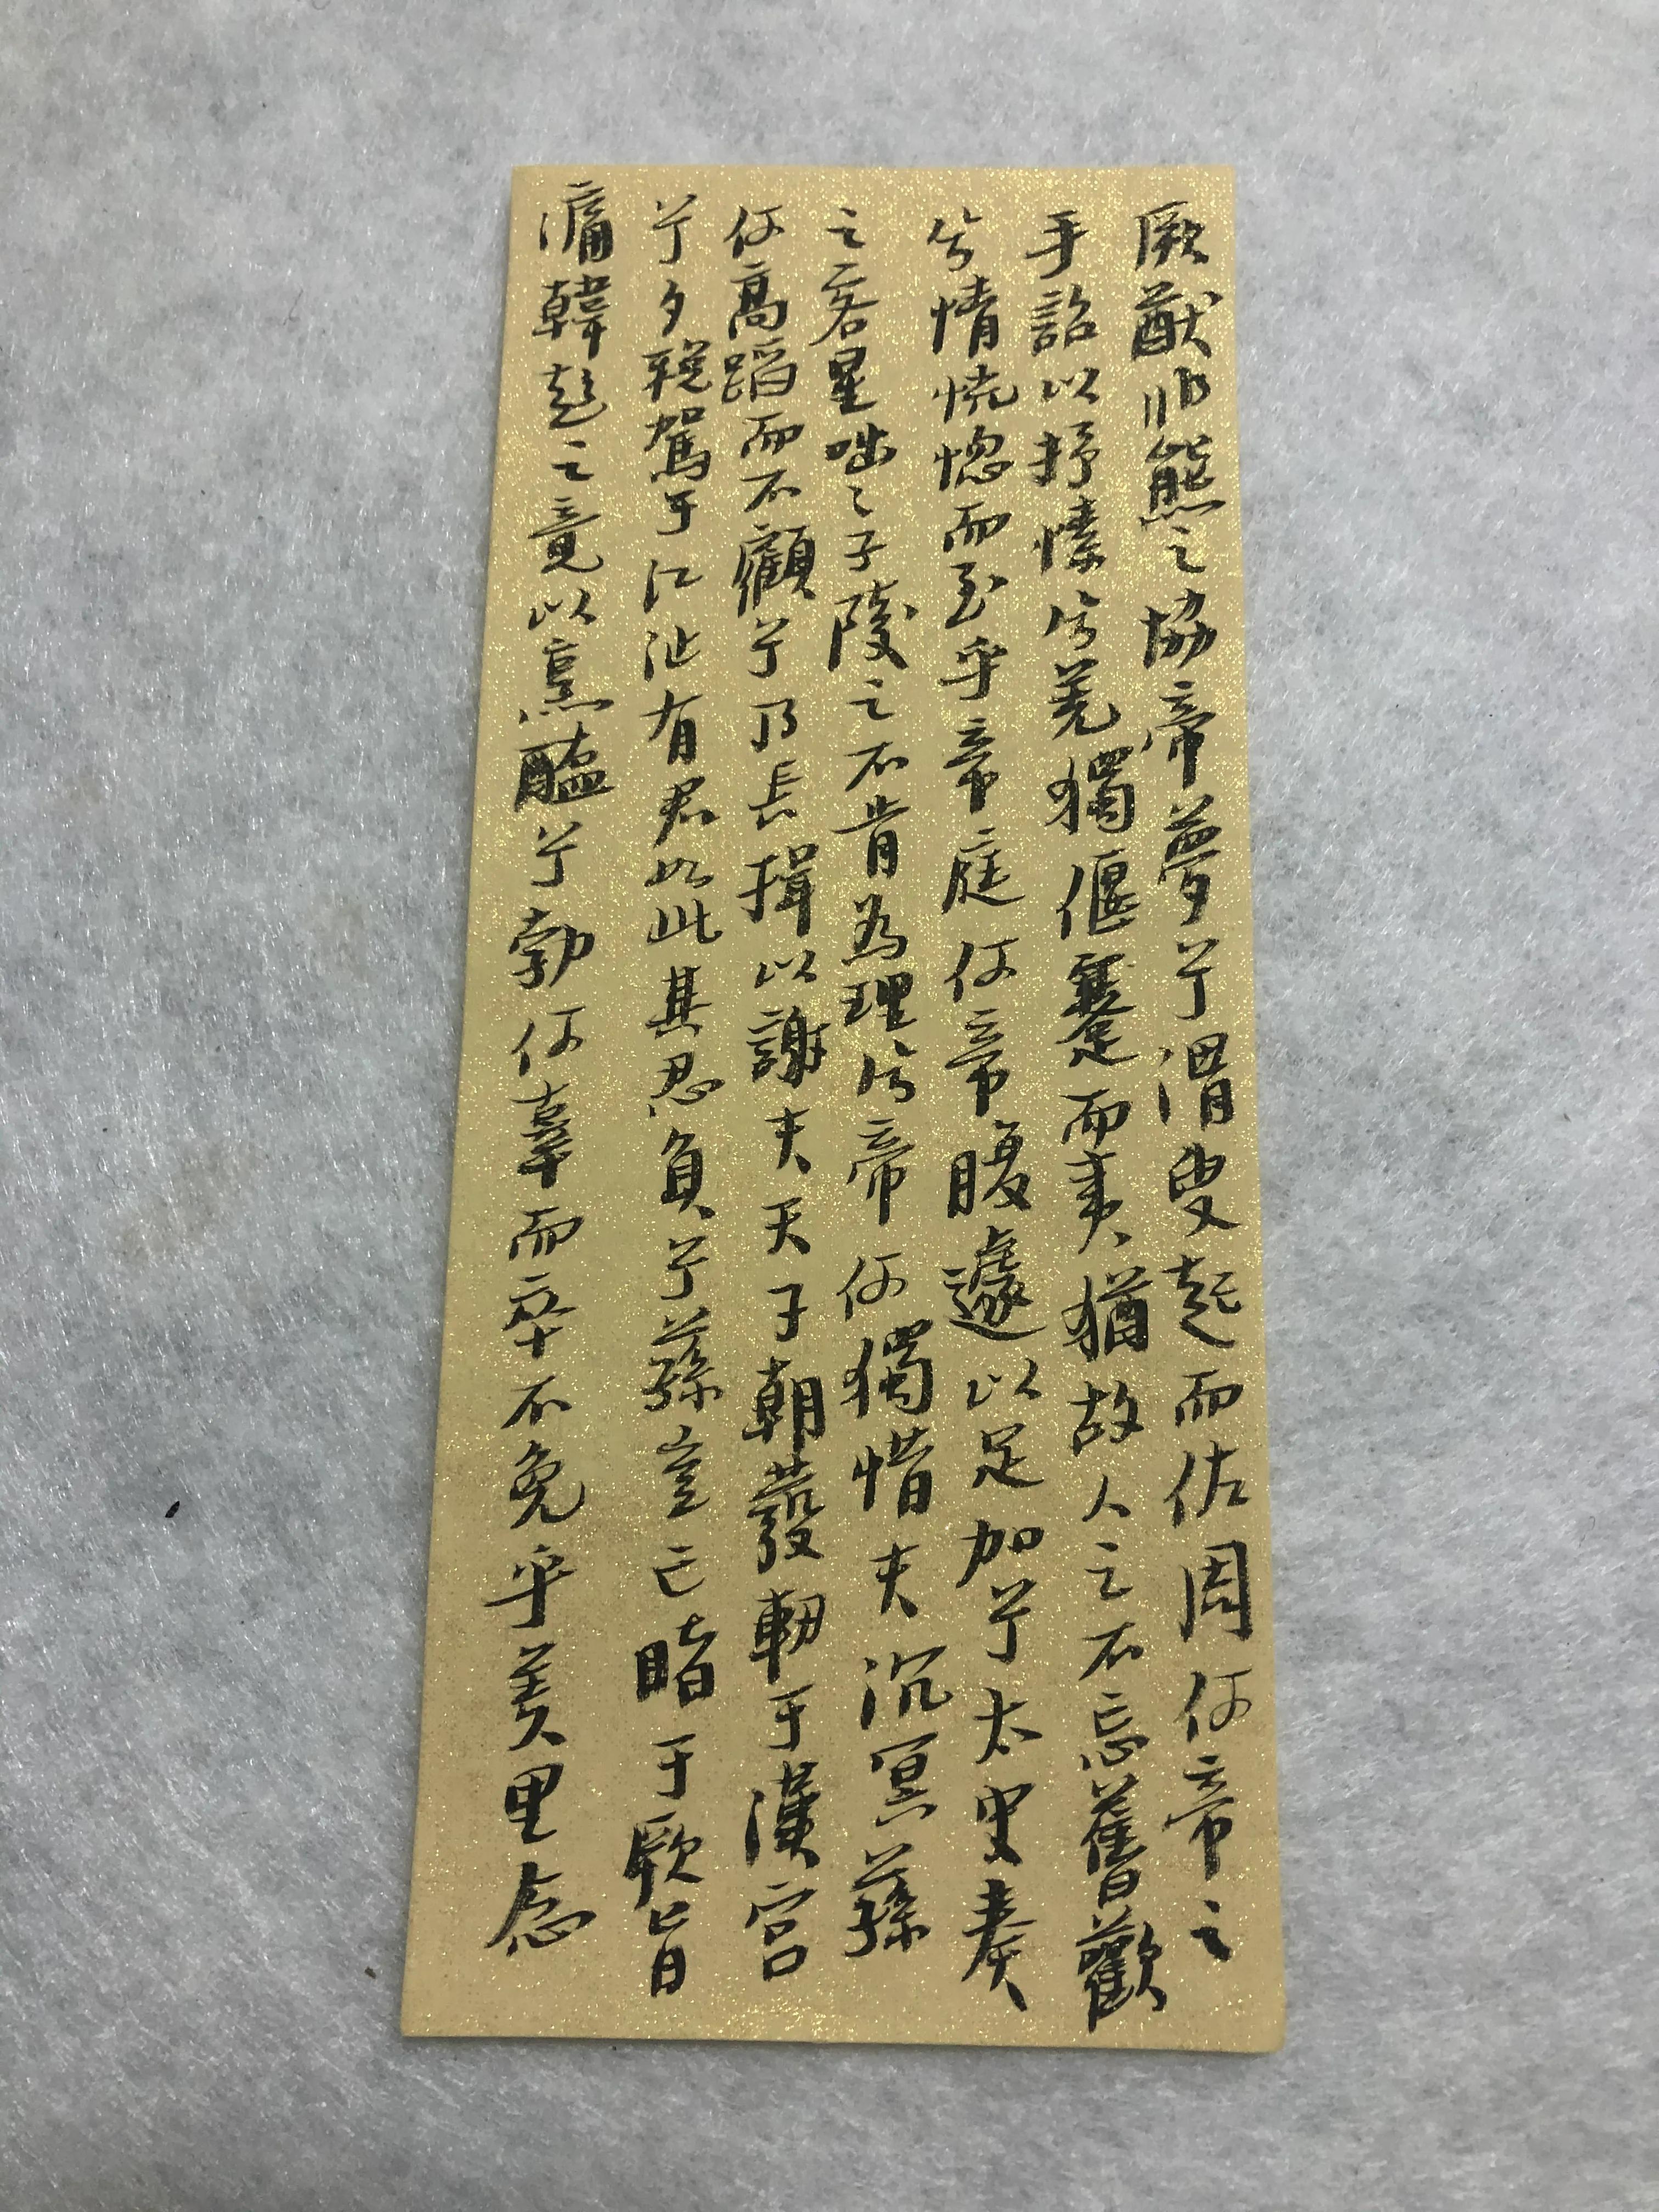 厥猷非熊之協帝夢兮渭叟起而佐周何帝之
手詔以抒愫兮羌獨偃蹇而夷猶故人之不忘舊歡
兮情恍惚而至乎帝庭何帝腹遽以足加兮太史奏
之客星咄之子陵之不肯為理兮帝何獨惜夫沉冥蓀
何高蹈而不顧兮乃長揖以謝夫天子朝發軔于漢宮
兮夕稅駕于江沚有君如此其忍負兮蓀豈已暗于厥旨
痛韓彭之竟以烹醢兮勃何辜而卒不免乎羑里念